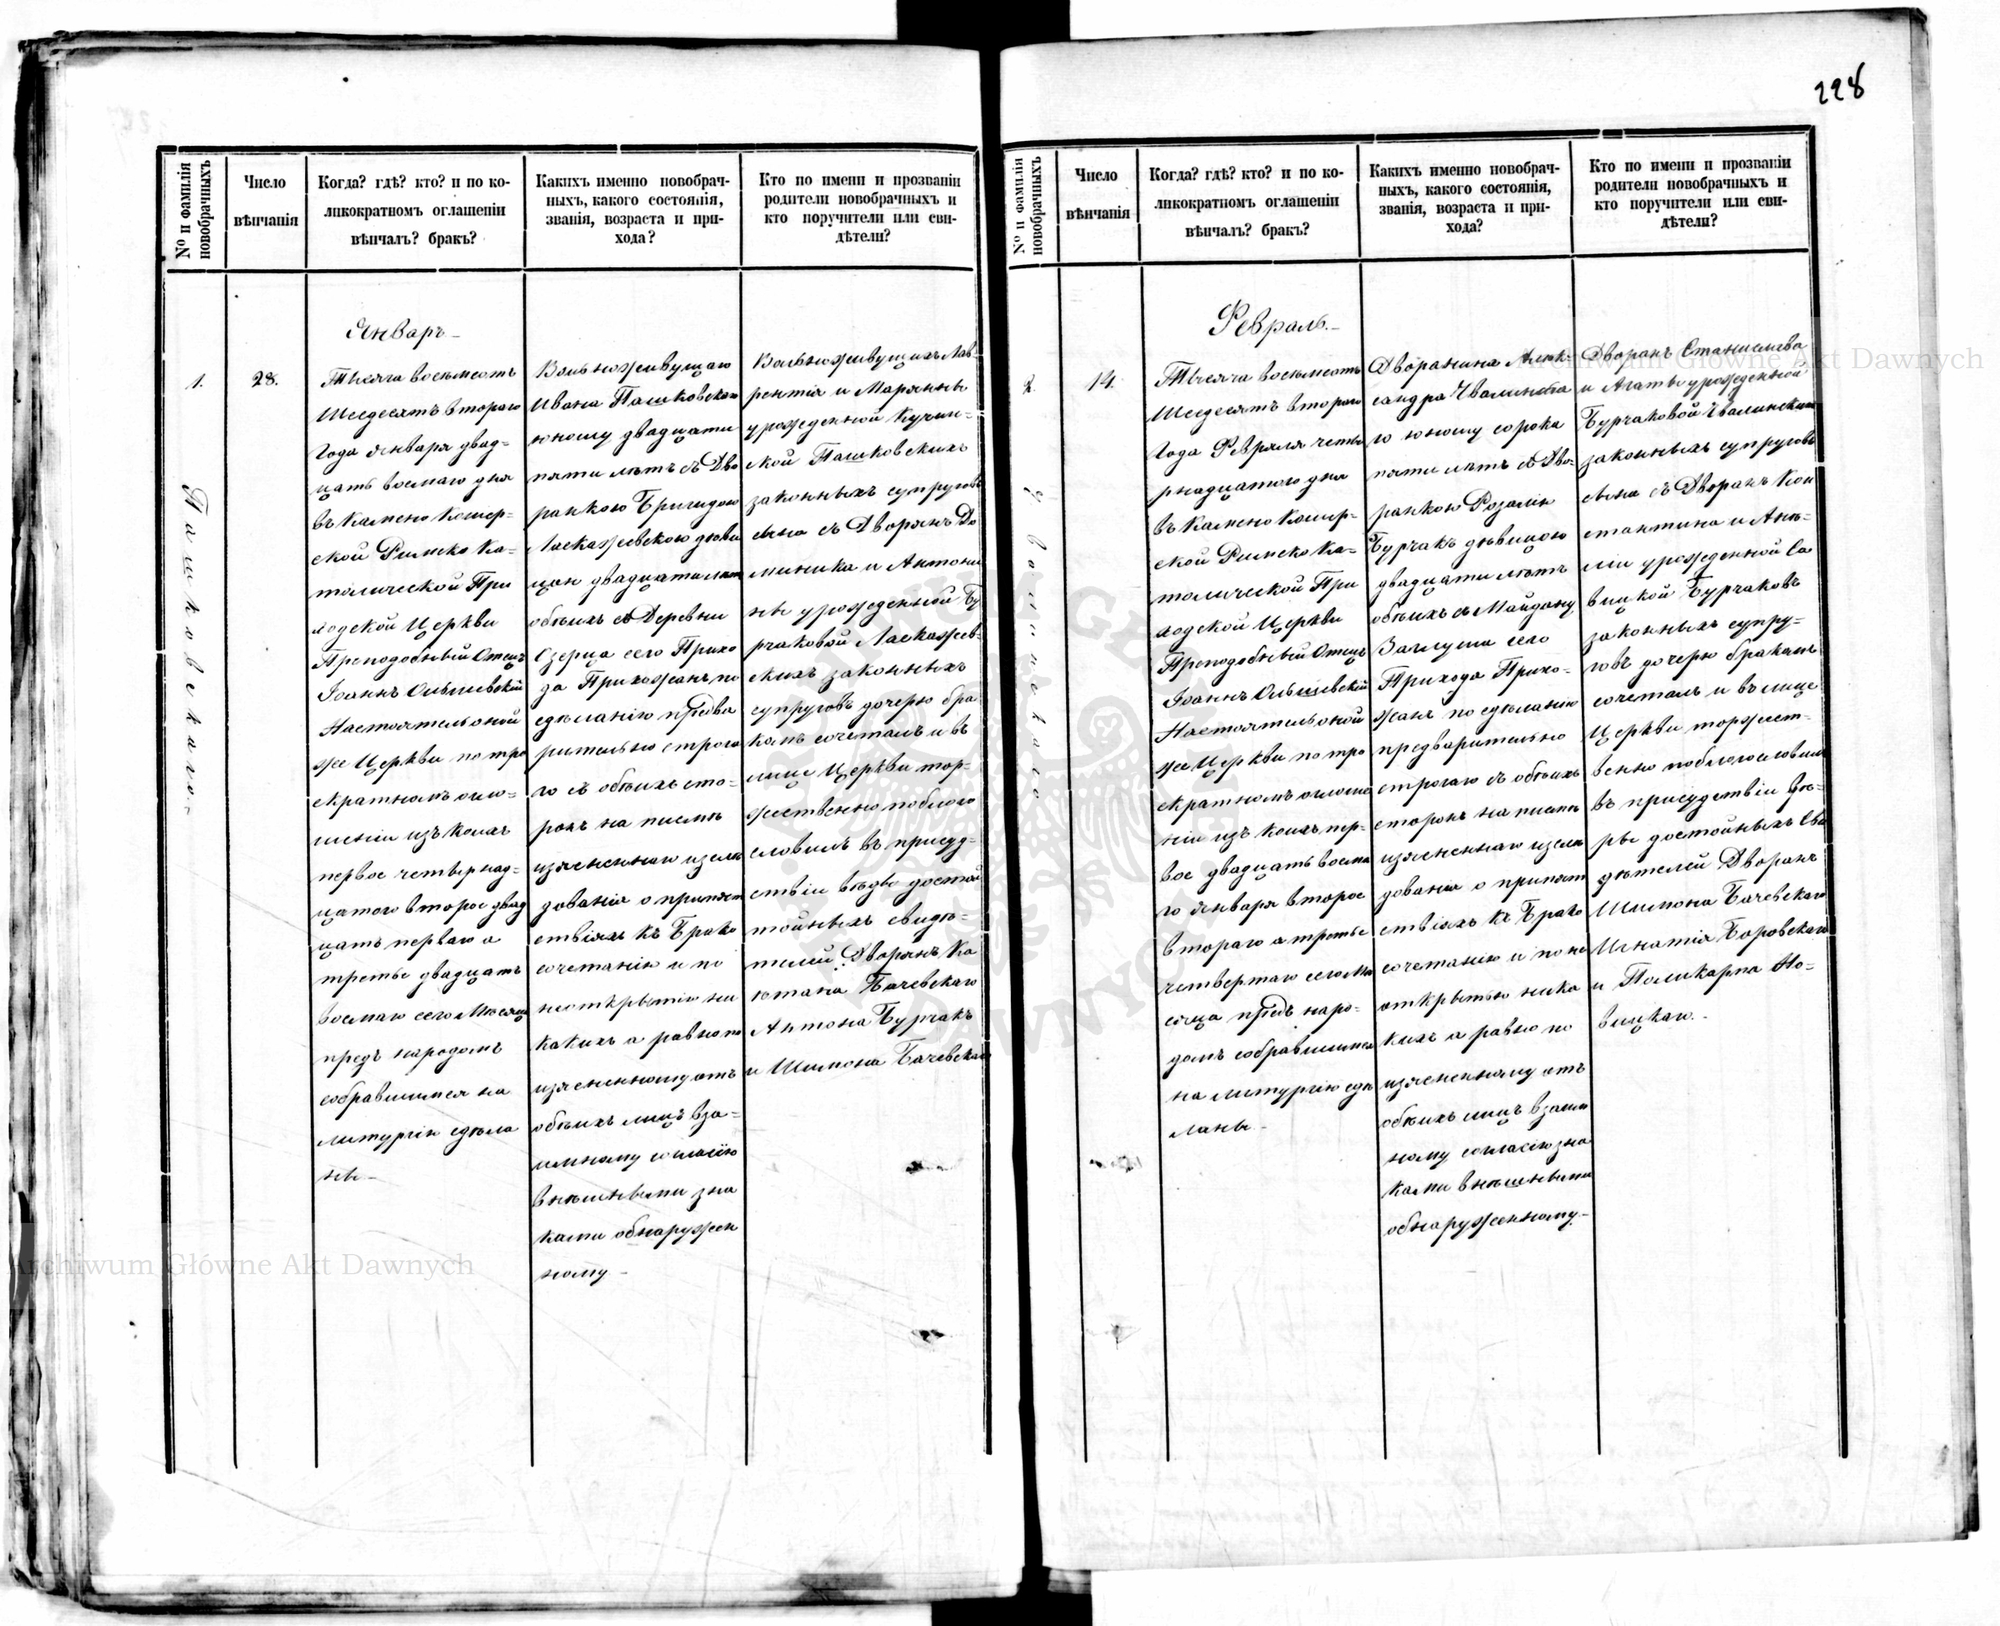 228
№ и фамилія новобрачныхъ
Число вѣнчанія
Когда? гдѣ? кто? и по ко-
ликократномъ оглашеніи
вѣнчалъ? бракъ?
Какихъ именно новобрач-
ныхъ, какого состоянія,
званія, возраста и при-
хода?
Кто по имени и прозванію
родители новобрачныхъ и
кто поручители или сви-
дѣтели?
1.
Пашковскаго
28.
Январь
Тысяча восемьсотъ
Шесдесятъ втораго
Года Января двад-
цать восмаго дня
въ Камено Кошер-
ской Римско Ка-
толической При
ходской Церкви
Преподобный Отецъ
Іоаннъ Ольшевскій
Настоятель оной
же Церкви по тро
екратномъ огло-
шеніи изъ коихъ
первое четырнад-
цатого второе двад
цать перваго а
третье двадцать
восмаго сего Месяца
предъ народомъ
собравшимся на
литургію сдела
ны
Вольноживущаго
Ивана Пашковскаго
юношу двадцати
пяти летъ съ Дво
рянкою Бригидою
Ласкажевскою деви
цою двадцати летъ
обоихъ съ Деревни
Озерца сего Прихо
да Прихожанъ по
сделанію предва
рительно строга
го съ обоихъ сто-
ронъ на письме
изясненнаго изсле
дованія о препят
ствіяхъ къ Брако
сочетанію и по
неоткрытію ни
какихъ а равно по
изясненному отъ
обоихъ лицъ вза-
имному согласію
внешными зна
ками обнаружен
ному
Вольноживущихъ Лав-
рентія и Маріянны
урожденной Кучин-
ской Пашковскихъ
законныхъ супруговъ
сына съ Дворянъ До
миника и Антони
ны урожденной Бу
рчаковой Ласкажев-
скихъ законныхъ
супруговъ дочерю бра
комъ сочеталъ и въ
лице Церкви тор-
жественно поблаго
словилъ въ присуд-
ствіи веры достой
тойныхъ свиде-
телей Дворянъ Ка
ютана Бачевскаго
Антона Бурчакъ
и Шимона Бачевскаго
№ и фамилія новобрачныхъ
Число вѣнчанія
Когда? гдѣ? кто? и по ко-
ликократномъ оглашеніи
вѣнчалъ? бракъ?
Какихъ именно новобрач-
ныхъ, какого состоянія,
званія, возраста и при-
хода?
Кто по имени и прозванію
родители новобрачныхъ и
кто поручители или сви-
дѣтели?
2
Чвалинскаго
14.
Февраль
Тысяча восемьсотъ
Шесдесятъ втораго
Года Февраля четы
рнадцатого дня
въ Камено Кошир-
ской Римско Ка-
толической При
ходской Церкви
Преподобный Отецъ
Іоаннъ Ольшевскій
Настоятель оной
же Церкви по тро
екратномъ оглаше
ніи изъ коихъ пер-
вое двадцать восма
го Января второе
втораго а третье
четвертаго сего Ме
сяца предъ наро-
домъ собравшимся
на литургію сде
ланы
Дворянина Алек-
сандра Чвалинска
го юношу сорока
пяти летъ съ Дво-
рянкою Розалію
Бурчакъ девицою
двадцати летъ
обоихъ съ Майдану
сего
Прихода Прихо-
жанъ по сделанію
предварительно
строгаго съ обоихъ
сторонъ на письме
изясненнаго изсле
дованія о препят
ствіяхъ къ Брако
сочетанію и по не
открытью ника
кихъ а равно по
изясненному отъ
обоихъ лицъ взаим
ному согласію зна
ками внешными
обнаруженному
Дворянъ Станислава
и Агаты урожденной
Бурчаковой Чвалинскихъ
законныхъ супруговъ
сына съ Дворянъ Кон
стантина и Анe-
ли урожденной Са
вицкой Бурчаковъ
законныхъ супру-
говъ дочерю бракомъ
сочеталъ и въ лице
Церкви торжест-
венно поблагословилъ
въ присудствіи ве-
ры достойныхъ Сви
детелей Дворянъ
Шимона Бачевскаго
Игнатія Боровскаго
и Поликарпа Но-
вицкаго.
Archiwum Główne Akt Dawnych
Archiwum Główne Akt Dawnych